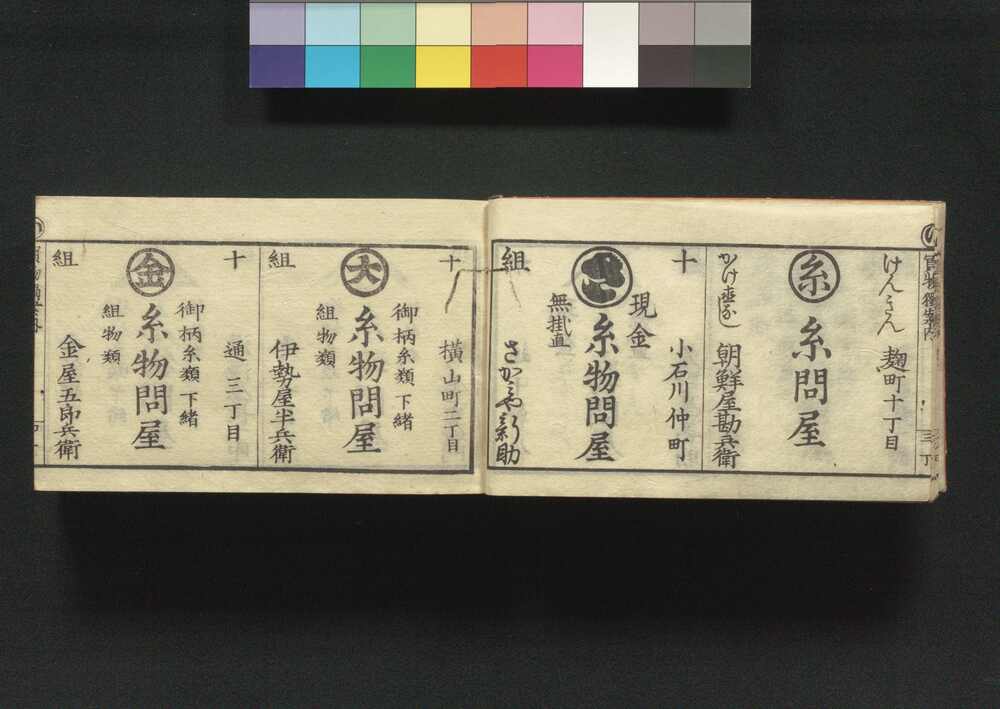 の
買物獨案内
三丁
げんきん
麹町十丁目
糸
糸問屋
かけ直なし
朝鮮屋勘兵衛
十
小石川仲町
現金
糸物問屋
無掛直
組
十
横山町二丁目
御柄糸類下緒
大
糸物問屋
組物類
組
伊勢屋半兵衛
十
通三丁目
御柄糸類下緒
金
糸物問屋
組物類
組
金屋五郎兵衛